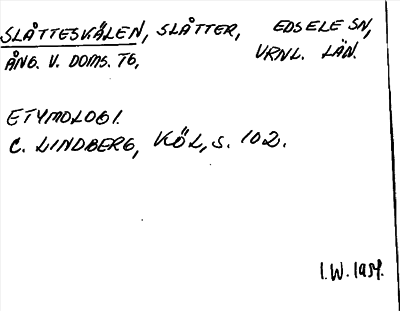 SLÅTTESKÄLEN, SLÅTTER, EDSELE SN,
ÅNG. V. DOMS. TG, VRNL. LÄN.
ETYMOLOGI.
C. LINDBERG, KÖL, S. 102.
I.W. 1954.